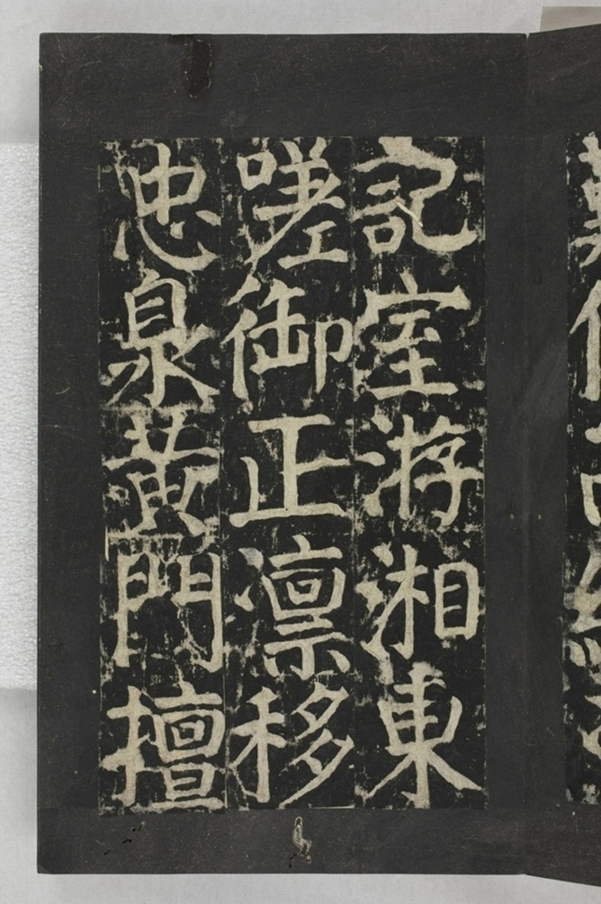 記室游湘東
嗟御正凛移
忠泉黃門擅